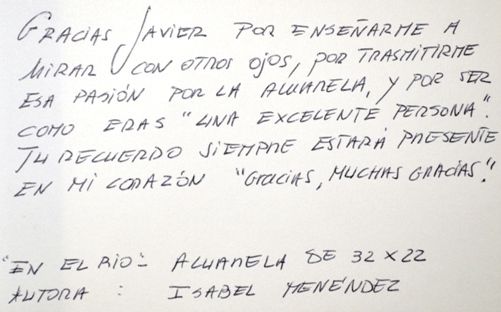 GRACIAS JAVIER POR ENSEÑARME A
MIRAR CON OTROS OJOS, POR TRASMITIRME
ESA PASIÓN POR LA ACUARELA, Y POR SER
COMO ERAS "UNA EXCELENTE PERSONA".
TU RECUERDO SIEMPRE ESTARÁ PRESENTE
EN MI CORAZÓN "GRACIAS, MUCHAS GRACIAS."
"EN EL RIO"- ACUARELA DE 32 X 22
AUTORA : ISABEL MENÉNDEZ